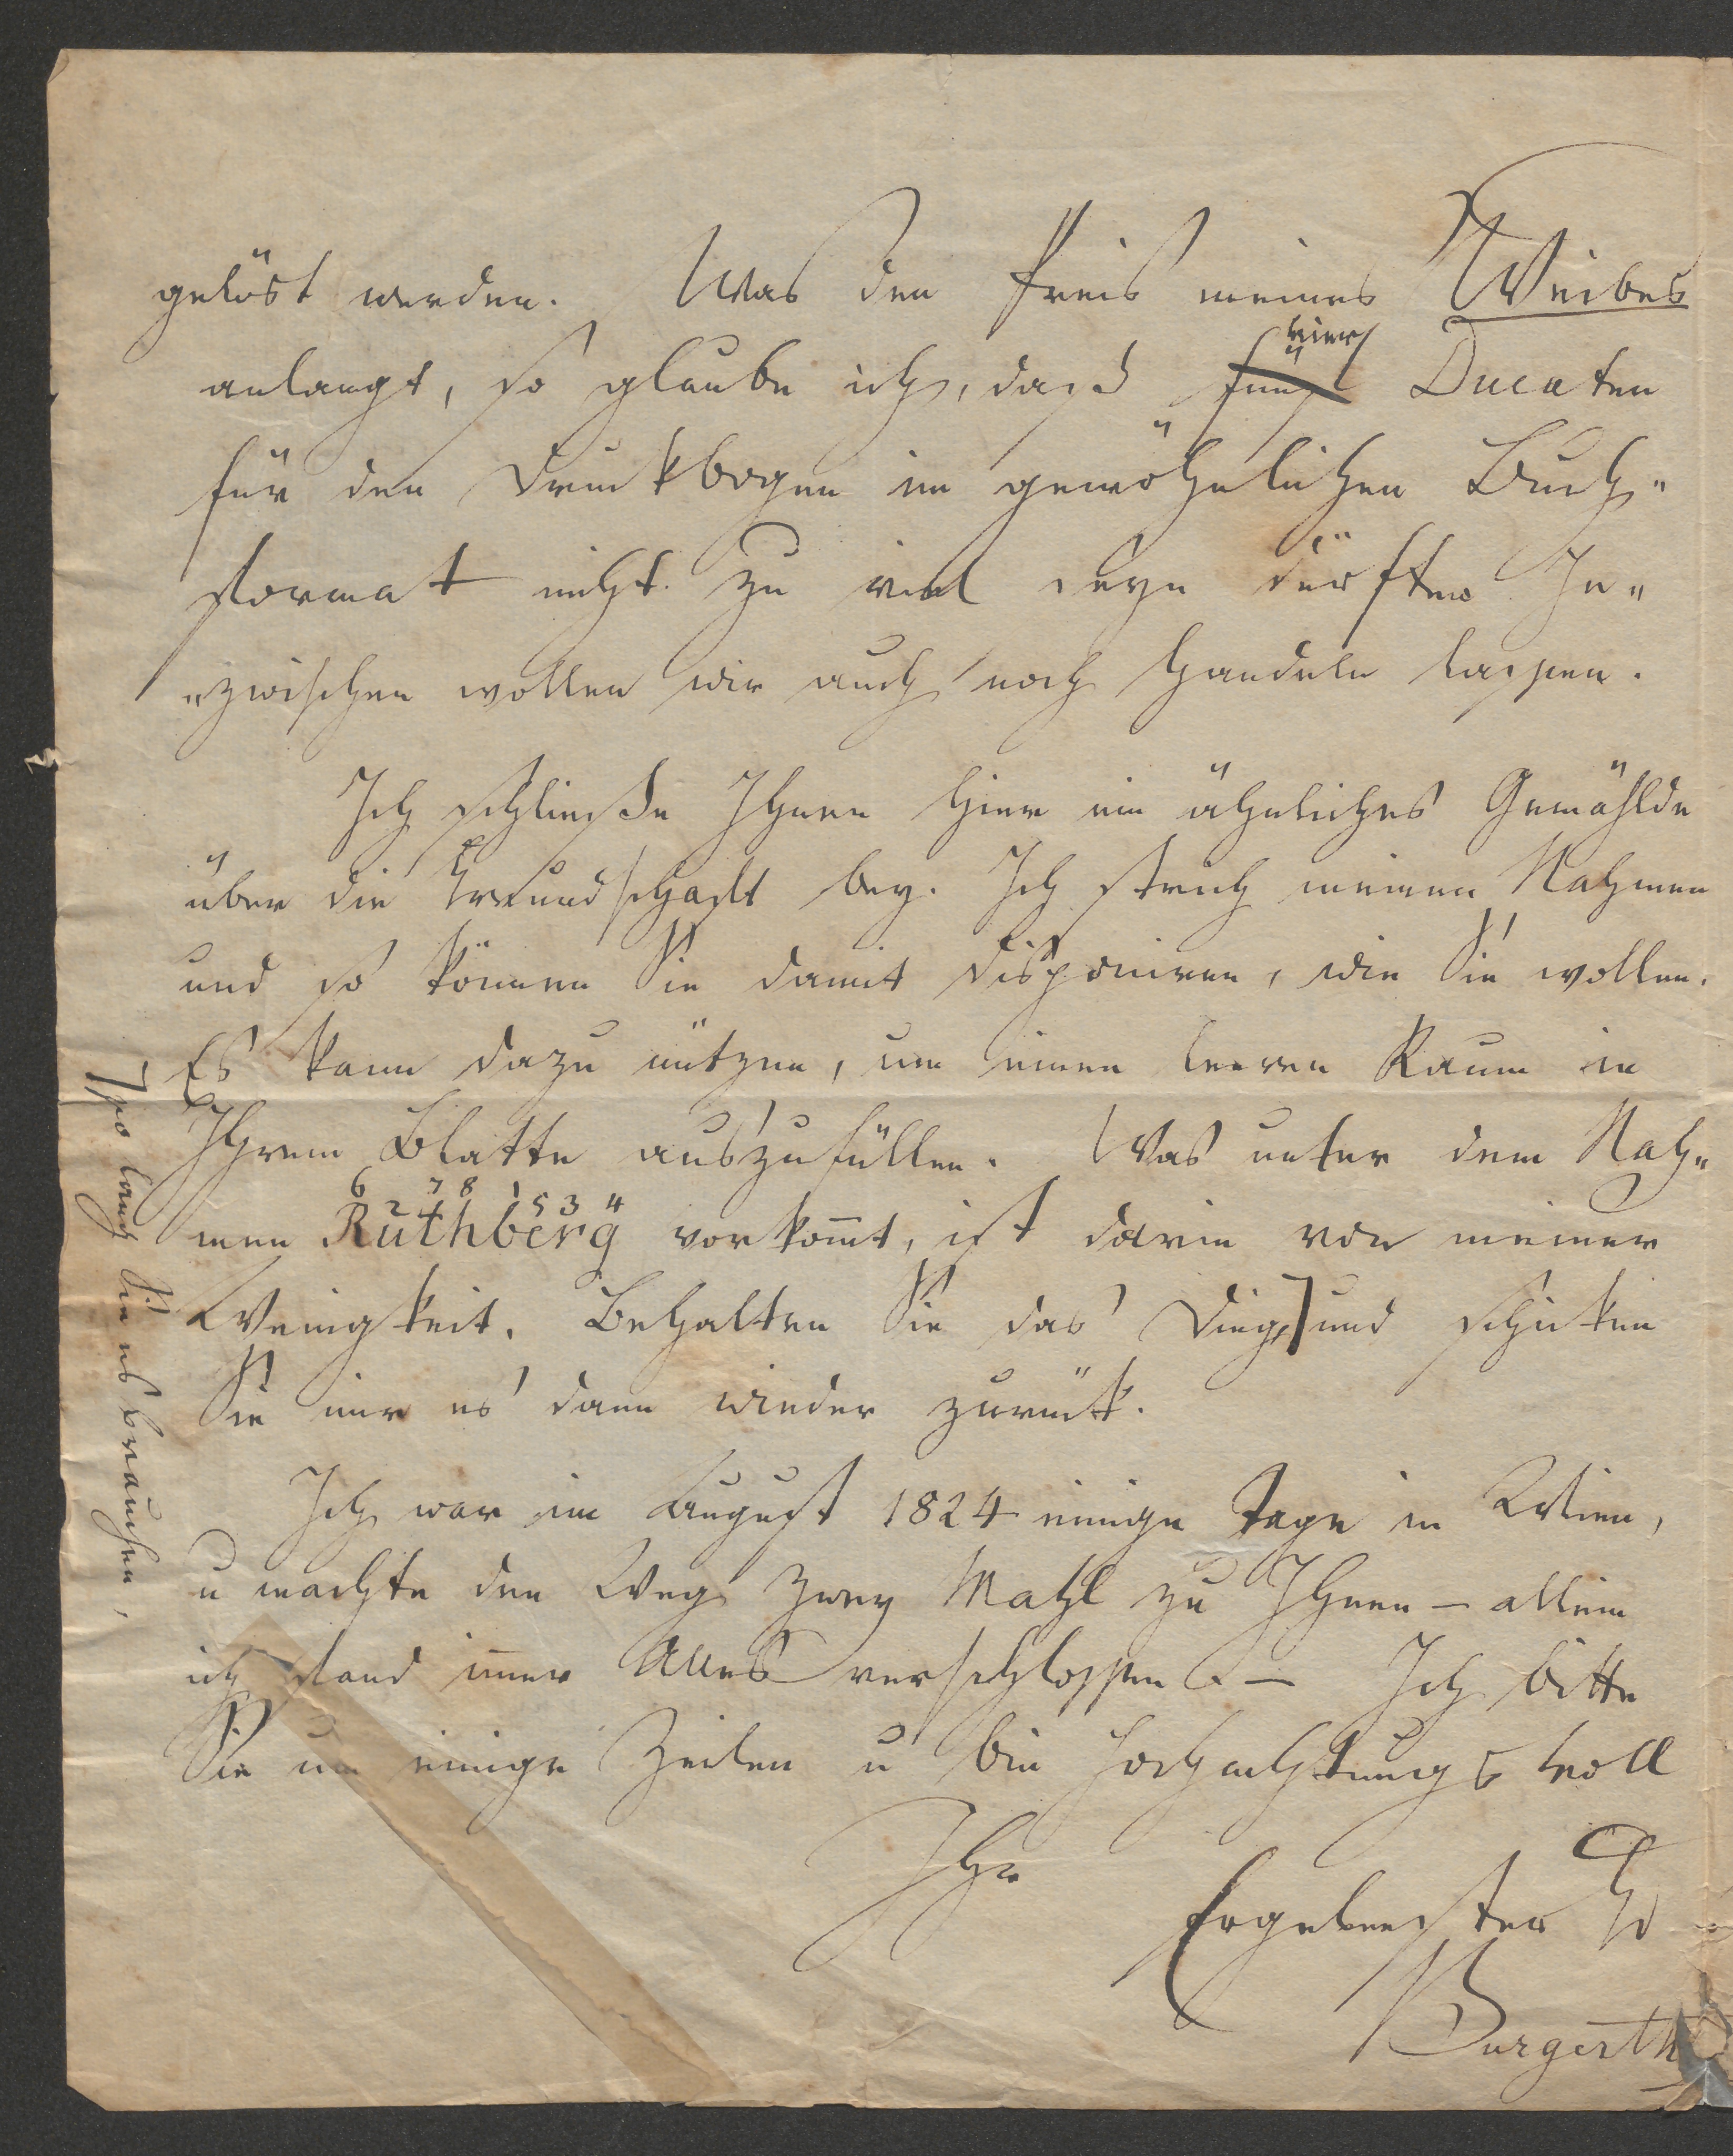 gelöst werden. Was den Preis meines Weibes
anlangt, so glaube ich, dass fünf vier Ducaten
für den Druckbogen im gewöhnlichen Buch„
format nicht zu viel seyn dürften. In„
„zwischen wollen wir auch noch handeln lassen.
Ich schließe Ihnen hier ein ähnliches Gemählde
über die Freundschaft bey. Ich strich meinen Nahmen
und so können Sie damit disponiren, wie Sie wollen.
Es kann dazu nützen, um einen leeren Raum in
Ihrem Blatte auszufüllen. Was unter dem Nah„
6 2 7 8 1 5 3 4
men Ruthberg vorkom̄t, ist darin von meiner
Wenigkeit. Behalten Sie das Ding ⌉ und schicken
Sie mir es dann wieder zurück.
Ich war im August 1824 einige Tage in Wien,
u machte den Weg zwey Mahl zu Ihnen – allein
ich fand im̄er Alles verschlossen. – Ich bitte
Sie um einige Zeilen u bin hochachtungsvoll
Ihr
Ergebenster
Burgerth
⌉ so lang Sie es brauchen,